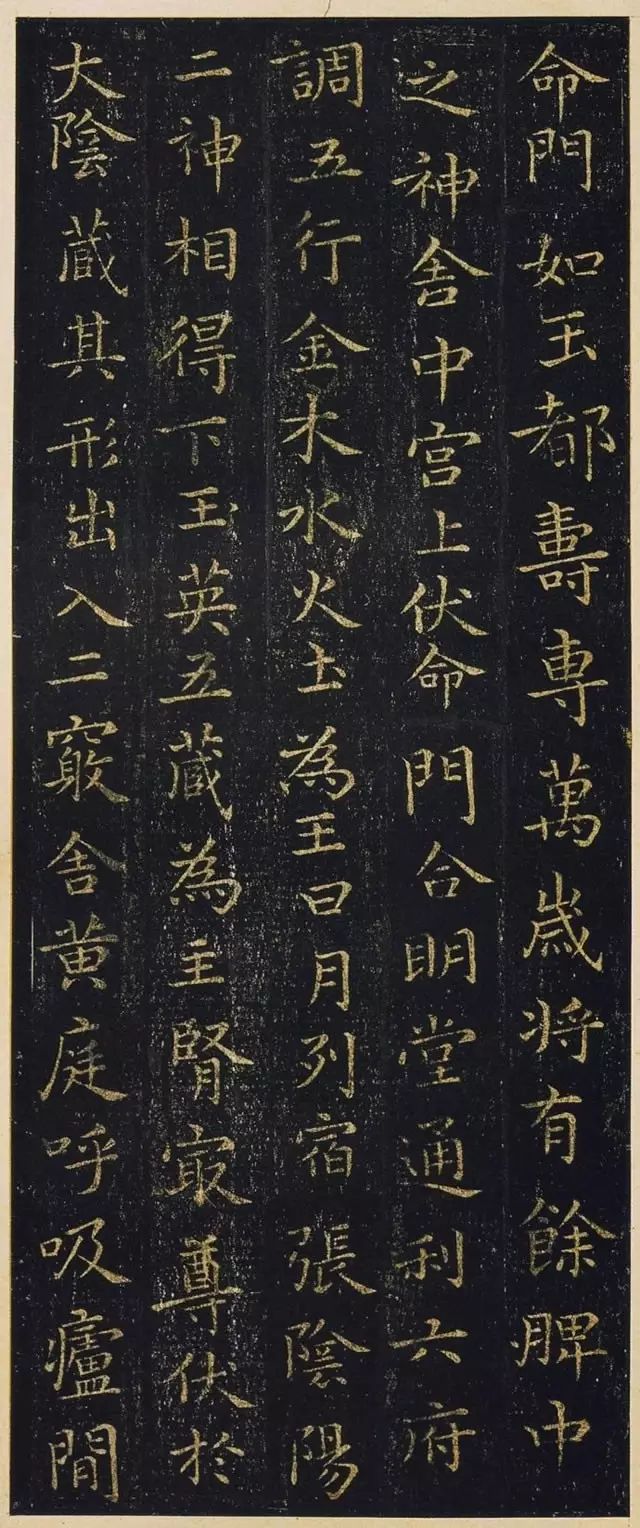 命門如玉都壽專萬歲將有餘脾中
之神舍中宮上伏命門合明堂通利六府
調五行金木水火土為王日月列宿張陰陽
二神相得下玉英五藏為主腎冣尊伏於
大陰藏其形出入二竅舍黃庭呼吸廬閒